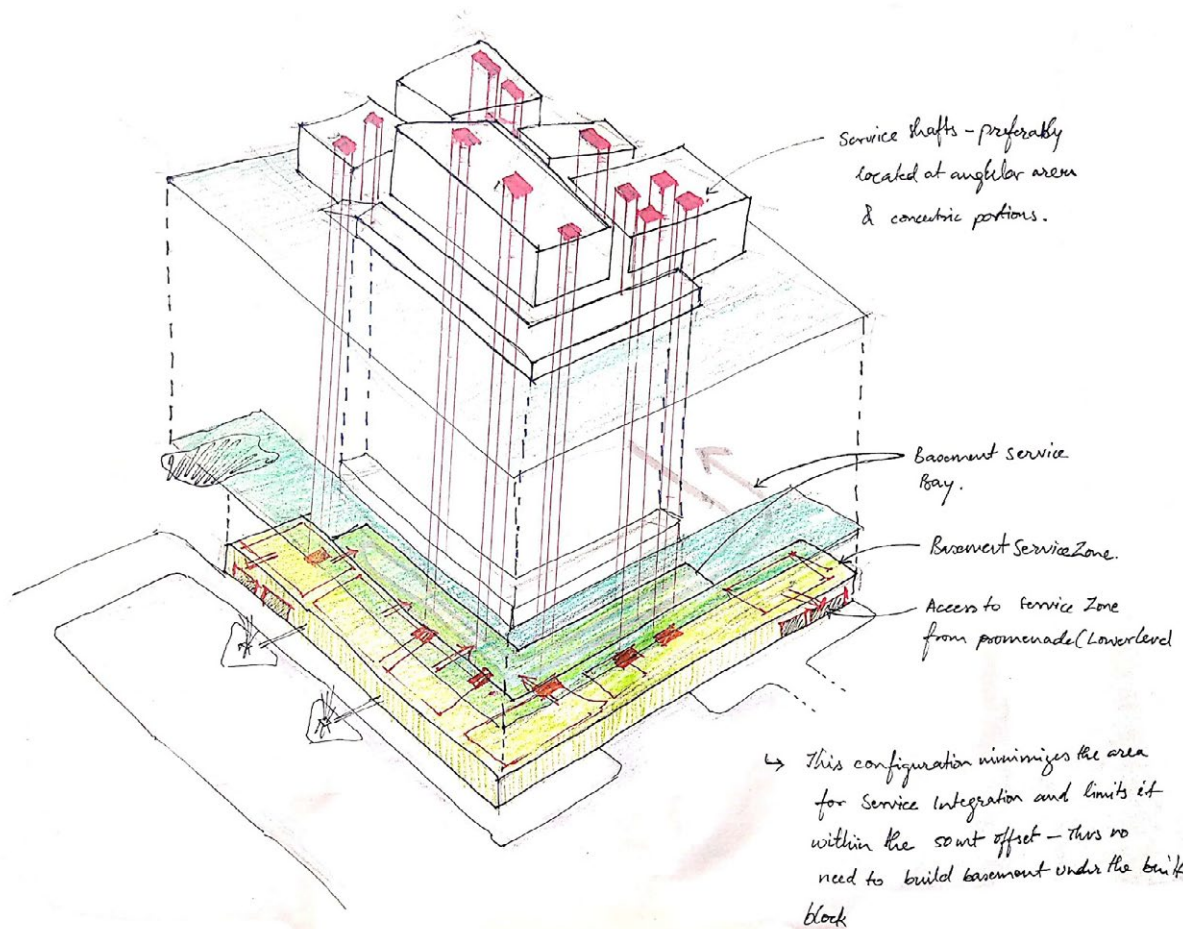 Service shafts – preferably
located at angular area
& concentric portions.
Basement Service
Bay.
Basement Service Zone.
Access to Service Zone
from promenade (Lower Level
↳ This configuration minimizes the area
for Service Integration and limits it
within the offset – Thus no
need to build basement under the built
block